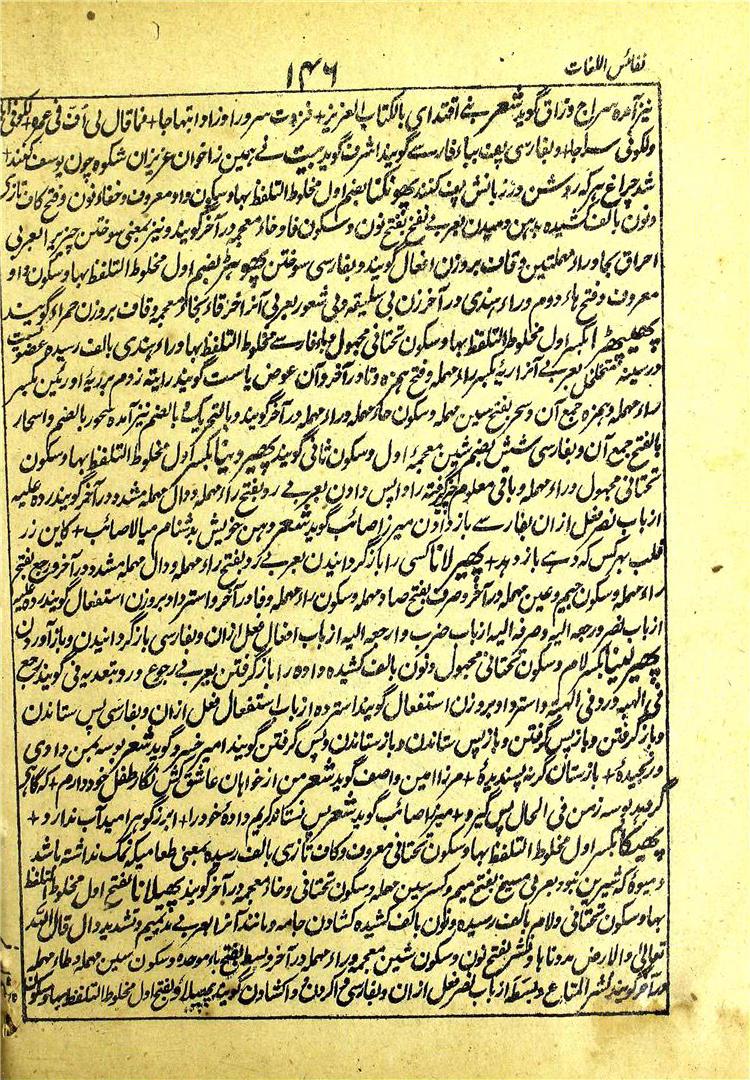 نفائس اللغات
۱۴۶
نیز آمده سراج وراق گوید شعر بنے اقتدای بالکتاب العزیز + فزدت سرورا وزاد ابتهاجا + فما قال لی اف فی عمره + لکونی
ولکونی سراجا + وبفارسی پف بباء فارسے گویند اشرف گوید بیت نے همین زاخوان عزیزان شکوه چون یوسف کند +
شد چراغ هر که روشن ورزبانش پف کند پهونکنا بضم اول مخلوط التلفظ بها وسکون واو معروف وخفاء نون وفتح کاف تازی
ونون بالف کشیده بدهن ودمیدن بعربے نفخ بفتح نون وسکون فا وخاء معجمه در آخر گویند ونیز بمعنی سوختن چیزیرا بعربی
احراق بحا وراء مهملتین وقاف بروزن افعال گویند وبفارسی سوختن پهوهڑ بضم اول مخلوط التلفظ بها وسکون واو
معروف وفتح هاء دوم وراء هندی در آخر زن بی سلیقه وبی شعور بعربی آنرا خرقاء بخاء معجمه وقاف بروزن حمراء گویند
پهیپهڑا بکسر اول مخلوط التلفظ بها وسکون تحتانی مجهول وباء فارسے مخلوط التلفظ بها وراء هندی بالف رسیده عضویست
در سینه بعربے آنرا ریه بکسر راء مهمله وفتح همزه وتا در آخر وآن عوض یاست گویند
راء مهمله وهمزه جمع آن وسحر بفتح سین مهمله وسکون حاء مهمله وراء مهمله در آخر گویند وبالتحریک وبالضم نیز آمده سحور بالضم واسحار
بالفتح جمع آن وبفارسی شش بضم شین معجمه اول وسکون ثانی گویند پهیر دینا بکسر اول مخلوط التلفظ بها وسکون
تحتانی مجهول وراء مهمله وباقی معلوم چیز گرفته را واپس دادن بعربے رد بفتح راء مهمله ودال مهمله مشدد در آخر گویند رده علیه
از باب نصر فعل ازان بفارسے باز دادن میرزا صائب گوید شعر دهن خویش بدشنام میالا صائب + کاین زر
قلب بهر کس که دهے باز دهد + پهیر لانا کسی را باز گردانیدن بعربے رد بفتح راء مهمله ودال مهمله مشدد در آخر ورجع بفتح
راء مهمله وسکون جیم وعین مهمله در آخر وصرف بفتح صاد مهمله وسکون راء مهمله وفا در آخر واسترداد بروزن استفعال گویند رده علیه
از باب نصر ورجعه الیه وصرفه الیه از باب ضرب وارجعه الیه از باب افعال فعل ازان وبفارسی باز گردانیدن وباز آوردن
پهیر لینا بکسر لام وسکون تحتانی مجهول ونون بالف کشیده داده را باز گرفتن بعربے رجوع ورد وتعدیه فی گویند رجع
فی الهبه ورد فی الهبه واسترداد بروزن استفعال گویند استرده از باب استفعال فعل ازان وبفارسی پس ستاندن
وباز گرفتن وباز پس گرفتن وباز پس ستاندن وباز ستاندن وپس گرفتن گویند امیر خسرو گوید شعر بوسه بمن دادی
ورنجیدهٔ + بازستان گر نه پسندیدهٔ + مرزا امین واصف گوید شعر من از خواهان عاشق کش نگار طفل خود دارم + که گاهی
گر دهد بوسه زمن فی الحال پس گیرد + میرزا صائب گوید شعر پس نستاند کریم دادهٔ خود را + ابر ز گوهر امید آب ندارد +
پهیکا بکسر اول مخلوط التلفظ بها وسکون تحتانی معروف وکاف تازی بالف رسیده بمعنی طعامیکه نمک نداشته باشد
ومیوهٔ که شیرین نبود بعربی مسیخ بفتح میم وکسر سین مهمله وسکون تحتانی وخاء معجمه در آخر گویند پهیلانا بفتح اول مخلوط التلفظ
بها وسکون تحتانی ولام بالف رسیده ونون بالف کشیده کشادن جامه ومانند آنرا بعربے مد بمیم وتشدید دال قال الله
تعالی والارض مددناها ونشر بفتح نون وسکون شین معجمه وراء مهمله در آخر وبسط بفتح باء موحده وسکون سین مهمله وطاء مهمله
در آخر گویند نشر المتاع وبسطه از باب نصر فعل ازان وبفارسی وا کردن واکشادن گویند پهیلاؤ بفتح اول مخلوط التلفظ بها وسکون